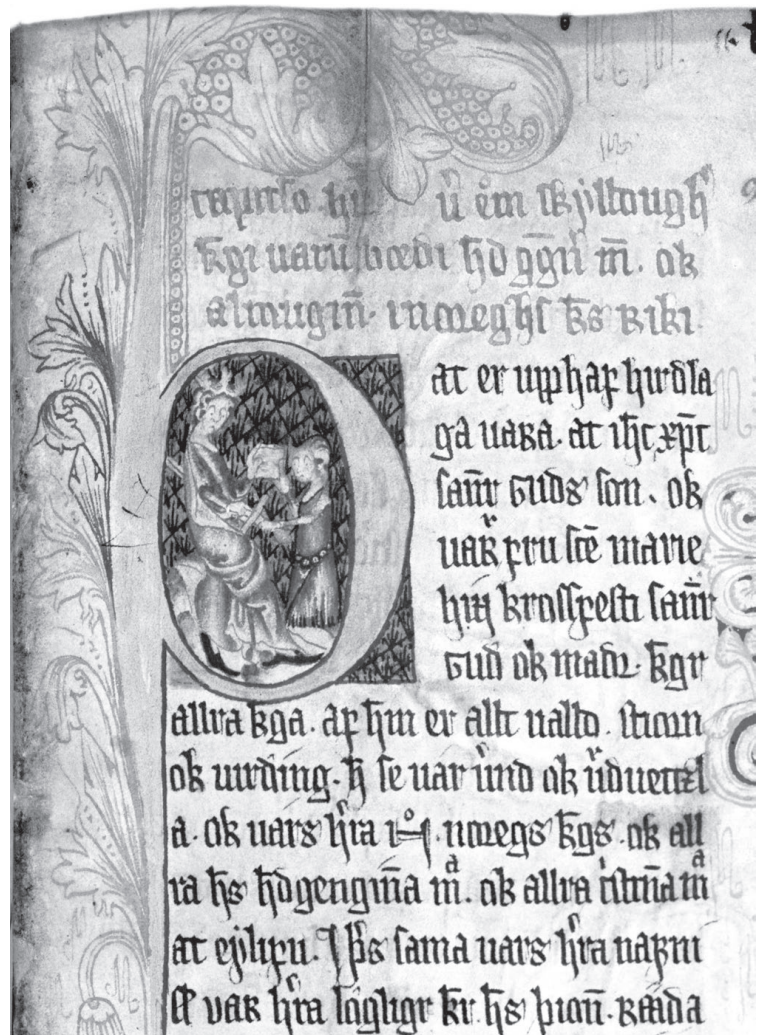 ū e̊m skylldugh
kgı uarū bœdi h̄d ggñ m̄. ok
almugin̄. i noreghſ k̄s riki
at er upphaf hırdla
ga uara. at ıh̄c xp̄c
san̄r guds ſon. ok
uaʀ fru ſcē marie
hın kroſſfeſti ſan̄r
gud ok madꝛ. k̄gr
allra k̄ga. af h̄m er allt ualld. ſtiorn
ok uirding. h̄ ſe uar u͛nd ok
a. ok uars h͛ra noregs k̄gs. ok all
ra h̄s h̄dgengın̄a mͣ. ok allra cͥſtın̄a mͣ
at eẏlifu. I þ̄s ſama uars h͛ra nafnı
uar h͛ra h̄s þion̄.